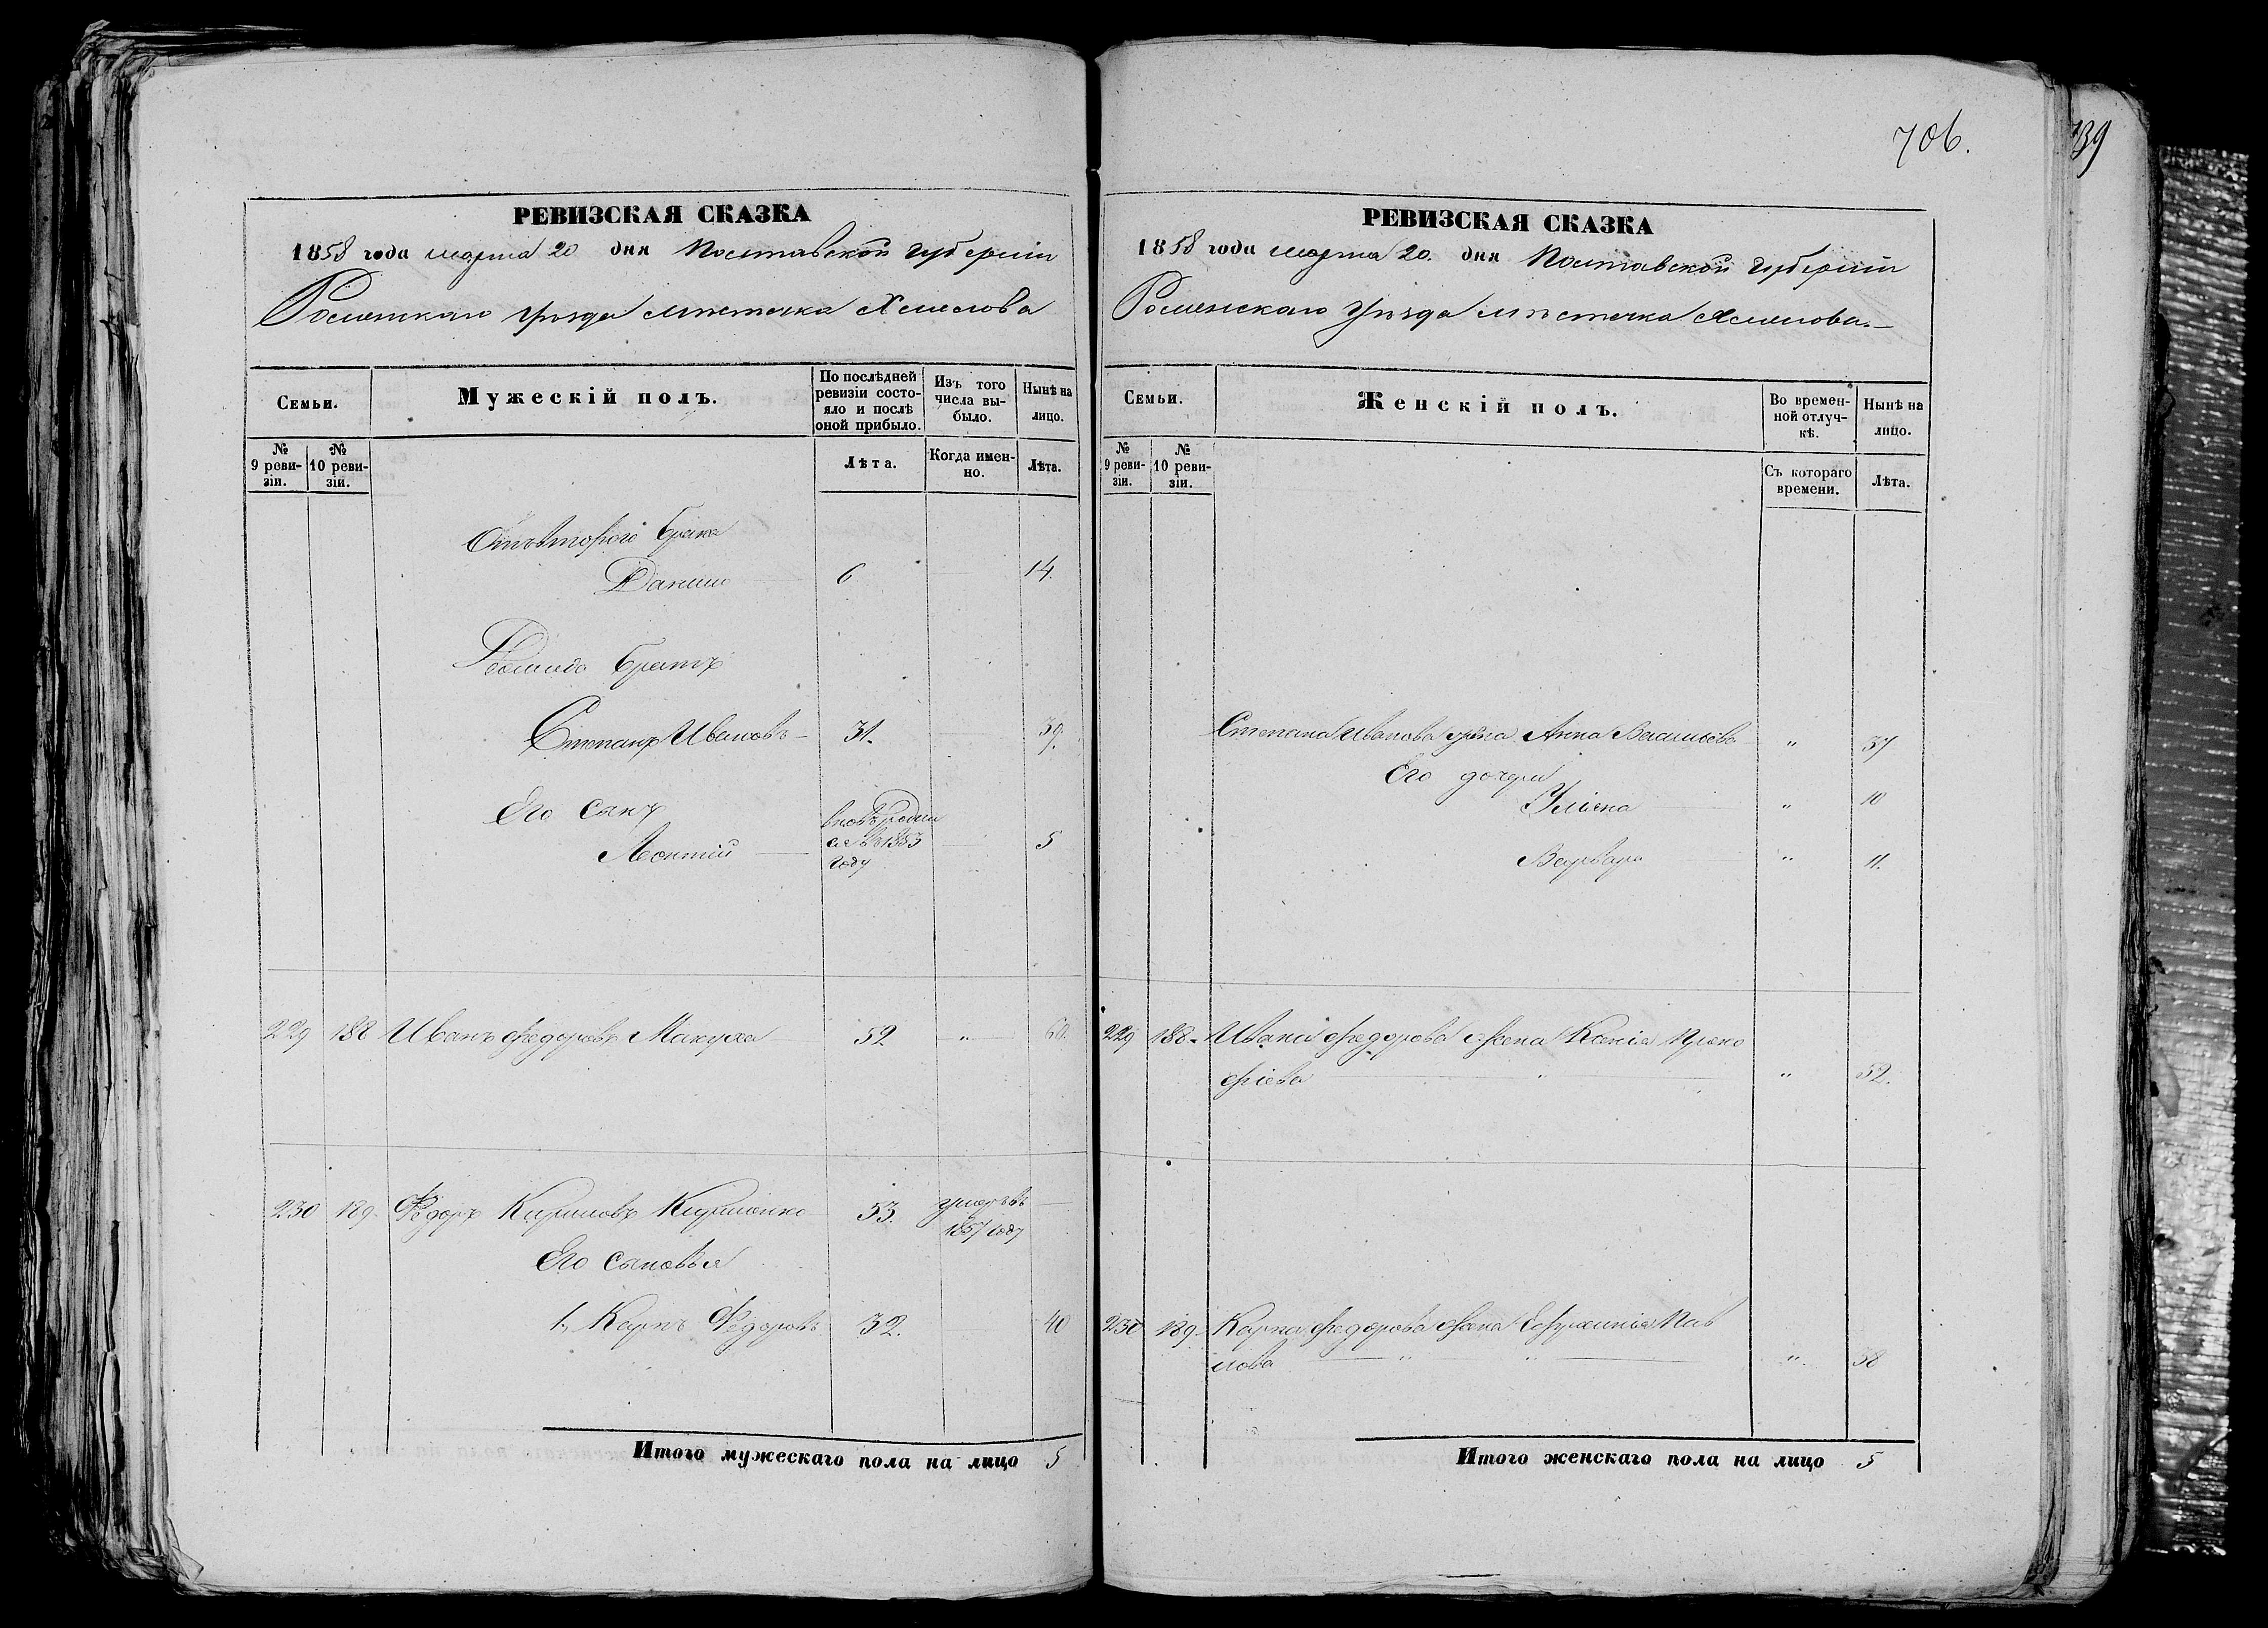 706.
139
РЕВИЗСКАЯ СКАЗКА
1858 года марта 20 дня Полтавской губерніи
Роменскаго уѣзда мѣстечка Хмелова
Семьи.
Мужескій полъ.
По послѣдней ревизіи состояло и послѣ оной прибыло.
Изъ того числа выбыло.
Нынѣ на лицо.
№ 9 ревизіи.
№ 10 ревизіи.
Лѣта.
Когда именно.
Лѣта.
Отъ втораго брака
Данило 6 14.
братъ
Степанъ Ивановъ 31. 39.
Его сынъ
Леонтій вновь родился въ 1853 году 5
229 188 Иванъ Федоровъ Макуха 52 " 60.
230 189. Федоръ Кириловъ Кириленко 53. умеръ въ 1857 году
Его сыновья
1, Карпъ Федоровъ 32. 40
Итого мужескаго пола на лицо 5
РЕВИЗСКАЯ СКАЗКА
1858 года марта 20. дня Полтавской губерніи
Роменскаго уѣзда мѣстечка Хмелова.
Семьи.
Женскій полъ.
Во временной отлучкѣ.
Нынѣ на лицо.
№ 9 ревизіи.
№ 10 ревизіи.
Съ котораго времени.
Лѣта.
Степана Иванова жена Анна Васильева " 37
Его дочери
Уліяна " 10
Варвара " 11.
229 188. Ивана Федорова жена Ксенія Проко
фіева " " 52.
230 189. Карпа Федорова жена Евфросинія Пав
лова " " " 38
Итого женскаго пола на лицо 5